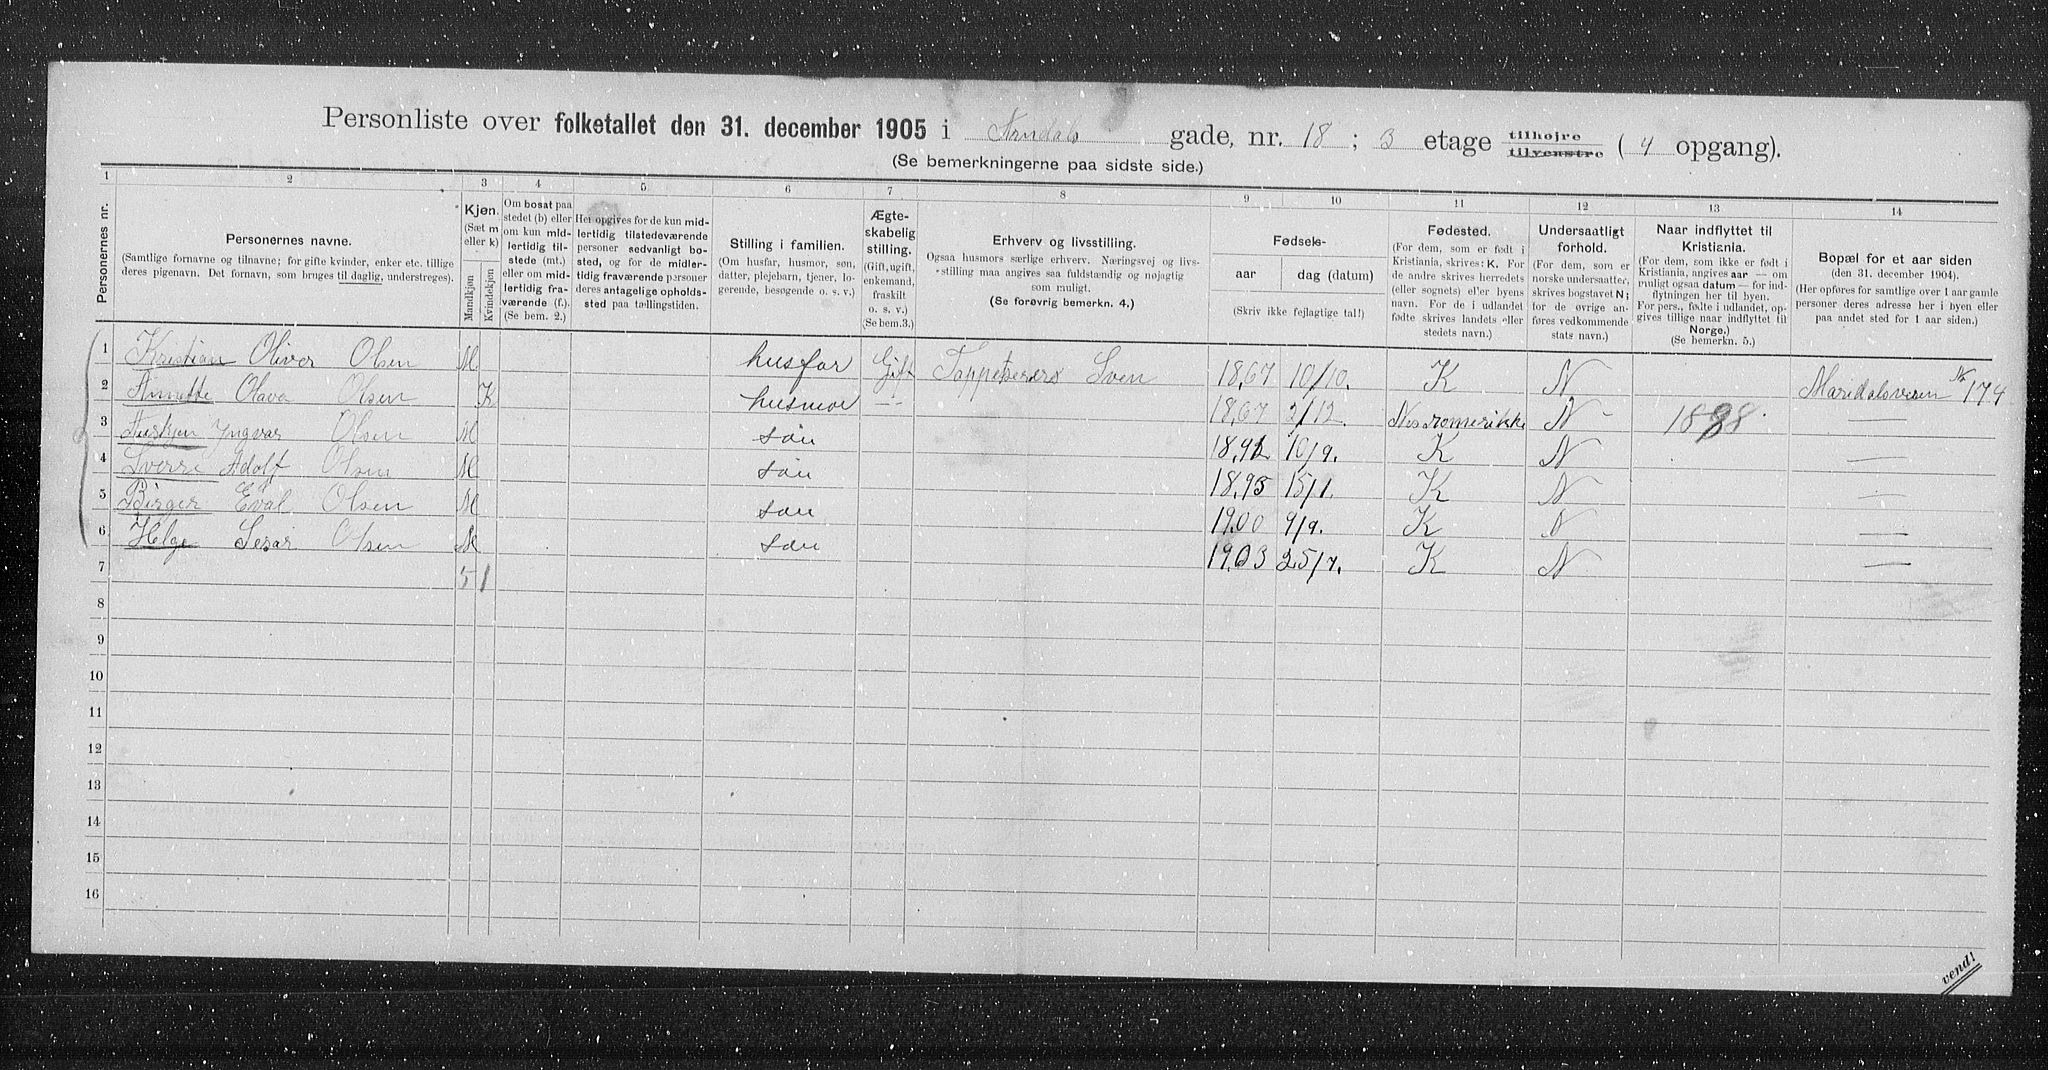 Personliste over folketallet den 31. december 1905 i Arndals gade, nr. 18; 3 etage tilhøjre tilvenstre (4 opgang).
(Se bemerkningerne paa sidste side.)
1 2 3 4 5 6 7 8 9 10 11 12 13 14
Personernes nr.
Personernes navne.
(Samtlige fornavne og tilnavne; for gifte kvinder, enker etc. tillige
deres pigenavn. Det fornavn, som bruges til daglig, understreges).
Kjøn.
(Sæt m
eller k)
Mandkjøn
Kvindekjøn
Om bosat paa
stedet (b) eller
om kun mid-
lertidig til-
stede (mt.)
eller om mid-
lertidig fra-
værende (f.).
(Se bem. 2.)
Her opgives for de kun mid-
lertidig tilstedeværende
personer sedvanligt bo-
sted, og for de midler-
tidig fraværende personer
deres antagelige opholds-
sted paa tællingstiden.
Stilling i familien.
(Om husfar, husmor, søn,
datter, plejebarn, tjener, lo-
gerende, besøgende o. s. v.)
Ægte-
skabelig
stilling.
(Gift, ugift,
enkemand,
fraskilt
o. s. v.)
(Se bem.3.)
Erhverv og livsstilling.
Ogsaa husmors særlige erhverv. Næringsvej og livs-
stilling maa angives saa fuldstændig og nøjagtig
som muligt.
(Se forøvrig bemerkn. 4.)
Fødsels-
aar dag (datum)
(Skriv ikke fejlagtige tal!)
Fødested.
(For dem, som er født i
Kristiania, skrives: K. For
de andre skrives herredets
(eller sognets) eller byens
navn. For de i udlandet
fødte skrives landets eller
stedets navn.)
Undersaatligt
forhold.
(For dem, som er
norske undersaatter,
skrives bogstavet N;
for de øvrige an-
føres vedkommende
stats navn.)
Naar indflyttet til
Kristiania.
(For dem, som ikke er født i
Kristiania, angives aar — om
muligt ogsaa datum — for ind-
flytningen her til byen.
For pers., fødte i udlandet, op-
gives tillige naar indflyttet til
Norge.)
(Se bemerkn. 5.)
Bopæl for et aar siden
(den 31. december 1904).
(Her opføres for samtlige over 1 aar gamle
personer deres adresse her i byen eller
paa andet sted for 1 aar siden.)
1 Kristian Oliver Olsen M husfar Gift Tappetserer Sven 1867 10/10. K N Maridalsveien No 174
2 Annette Olava Olsen K husmor -"- 1867 2/12. Nes romerikke N 1888. —
3 Yngvar Olsen M søn 1892 10/9. K N —
4 Sverre Adolf Olsen M søn 1895 15/1. K N —
5 Birger Eval Olsen M søn 1900 9/9. K N —
6 Helge Sesar Olsen M søn 1903 25/7. K N —
7 5 1
8
9
10
11
12
13
14
15
16
vend!